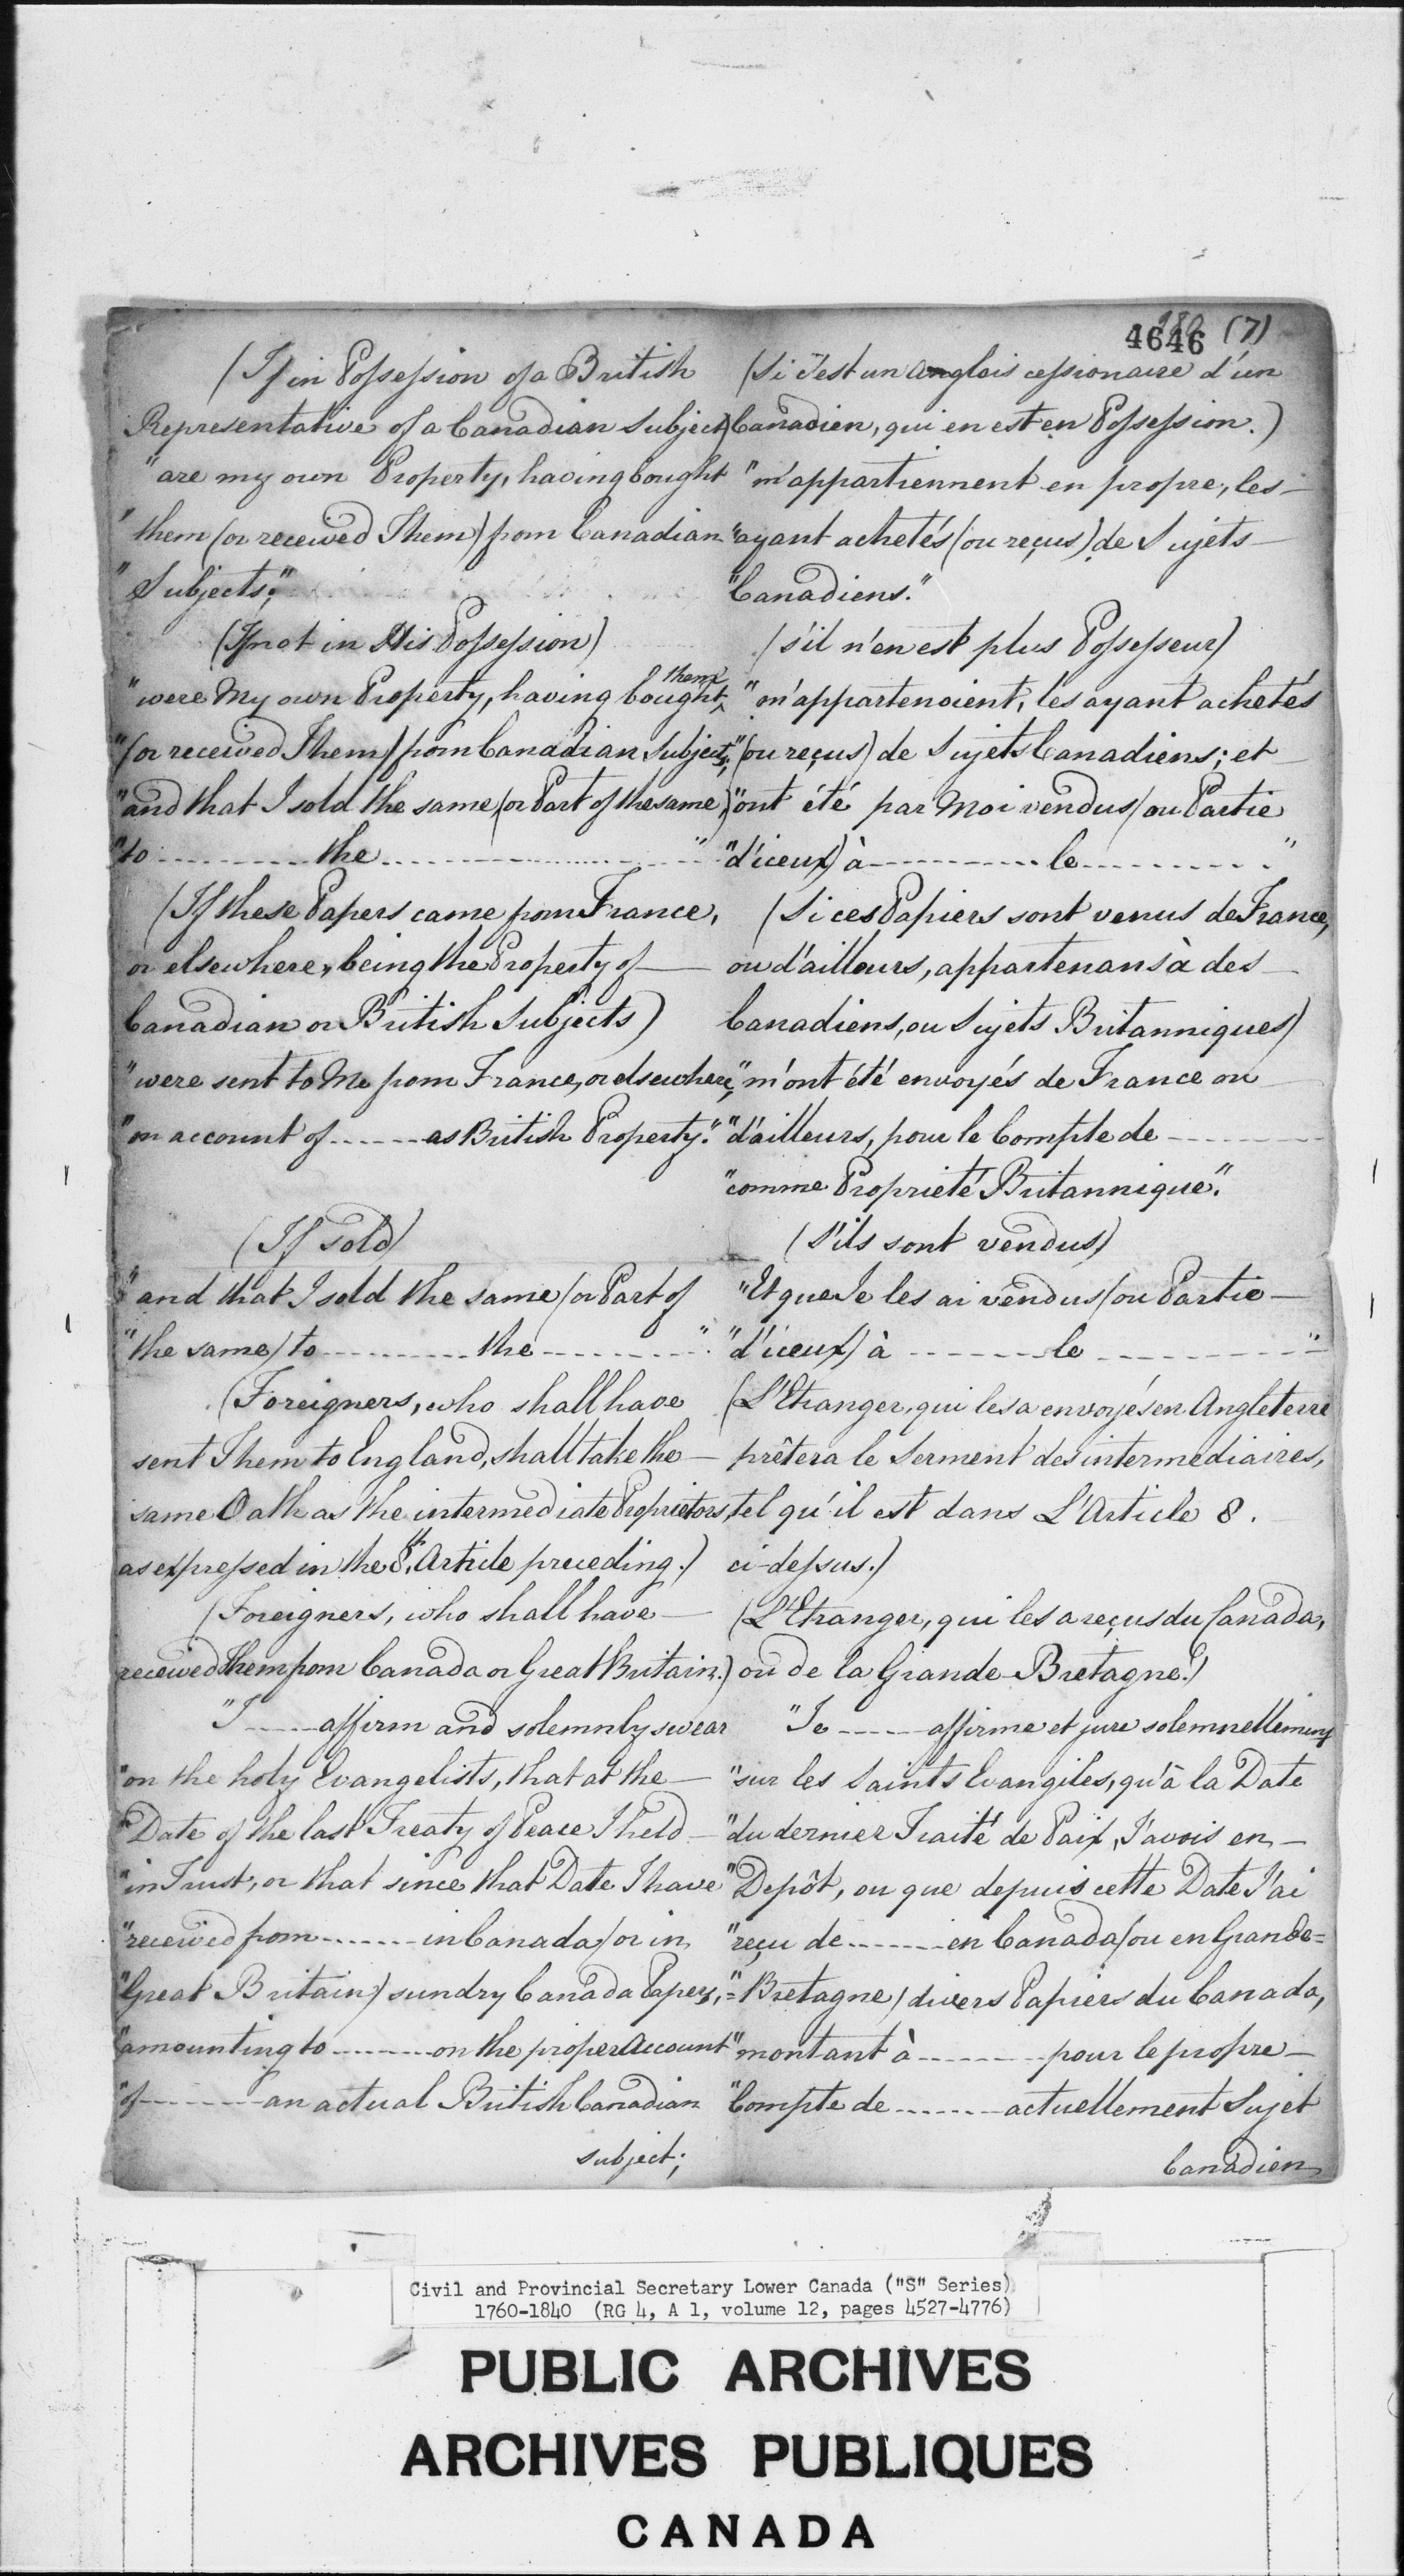 4646 (7)
(If in Possession of a British
Representative of a Canadian Subject)
"are my own Property, having bought
"them (or received Them) from Canadian
"Subjects;"
(If not in His Possession)
"were My own Property, having bought them
"(or received Them) from Canadian Subjects;
"and that I sold the same (or Part of the same)
"to ---------- the ----------------------"
(If these Papers came from France,
or elsewhere, being the Property of —
Canadian or British Subjects)
"were sent to Me from France, or elsewhere,
"on account of ------ as British Property."
(If sold)
"and that I sold the same (or Part of
"the same) to ---------- the ----------"
(Foreigners, who shall have
sent Them to England, shall take the —
same Oath as the intermediate Proprietors,
as expressed in the 8th. Article preceding.)
(Foreigners, who shall have —
received them from Canada or Great Britain.)
"I ----- affirm and solemnly swear
"on the holy Evangelists, that at the —
"Date of the last Treaty of Peace I held —
"in Trust, or that since that Date I have
"received from ------- in Canada (or in
"Great Britain) sundry Canada Papers,
"amounting to --------- on the proper Account
"of --------- an actual British Canadian
subject;
(Si c'est un Anglois cessionaire d'un
Canadien, qui en est en Possession.)
"m'appartiennent en propre, les —
"ayant achetés (ou reçus) de Sujets —
"Canadiens."
(s'il n'en est plus Possesseur)
"m'appartenoient, les ayant achetés
"(ou reçus) de Sujets Canadiens; et —
"ont été par Moi vendus (ou Partie
"d'iceux) à ------------ le ----------"
(Si ces Papiers sont venus de France,
ou d'ailleurs, appartenans à des —
Canadiens, ou Sujets Britanniques)
"m'ont été envoyés de France ou —
"d'ailleurs, pour le Compte de ----------
"comme Proprieté Britannique."
(S'ils sont vendus)
"Et que Je les ai vendus (ou Partie —
"d'iceux) à --------- le --------------"
(L'Etranger, qui les a envoyés en Angleterre
prêtera le Serment des intermediaires,
tel qu'il est dans L'Article 8.
ci-dessus.)
(L'Etranger, qui les a reçus du Canada,
ou de la Grande-Bretagne.)
"Je ------ affirme et jure solemnellement
"sur les Saints Evangiles, qu'à la Date
"du dernier Traité de Paix, J'avois en —
"Depôt, ou que depuis cette Date J'ai
"reçu de ------- en Canada (ou en Grande=
"=Bretagne) divers Papiers du Canada,
"montant à --------- pour le propre —
"Compte de ------- actuellement Sujet
Canadien
Civil and Provincial Secretary Lower Canada ("S" Series)
1760-1840 (RG 4, A 1, volume 12, pages 4527-4776)
PUBLIC ARCHIVES
ARCHIVES PUBLIQUES
CANADA